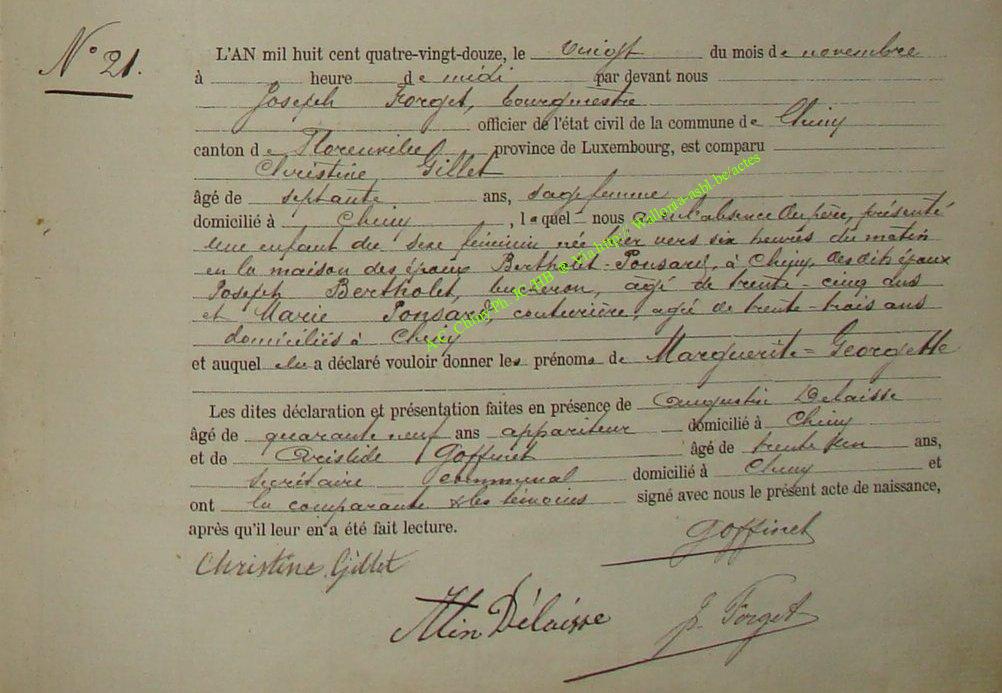 N° 21.
L'AN mil huit cent quatre-vingt-douze, le vingt du mois de novembre
à heure de midi par devant nous
Joseph Forget, bourgmestre
officier de l'état civil de la commune de Chiny
canton de Florenville province de Luxembourg, est comparu
Christine Gillet
âgé de septante ans, sage femme
domicilié à Chiny, laquel nous a en l'absence du père, présenté
une enfant du sexe féminin née hier vers six heures du matin
en la maison des époux Bertholet-Ponsard, à Chiny, desdits époux
Joseph Bertholet, bucheron, agé de trente-cinq ans
et Marie Ponsard, couturière, agée de trente-trois ans
domiciliés à Chiny
et auquel elle a déclaré vouloir donner les prénoms de Marguerite=Georgette
Les dites déclaration et présentation faites en présence de Augustin Delaisse
âgé de quarante neuf ans appariteur domicilié à Chiny
et de Aristide Goffinet âgé de trente un ans,
secrétaire communal domicilié à Chiny et
ont la comparante & les témoins signé avec nous le présent acte de naissance,
après qu'il leur en a été fait lecture.
Goffinet
Christine Gillet
Atin Délaisse
J. Forget
A.C. Chiny-Ph. JC.HB @ Via http:// Wallonia-asbl.be/actes